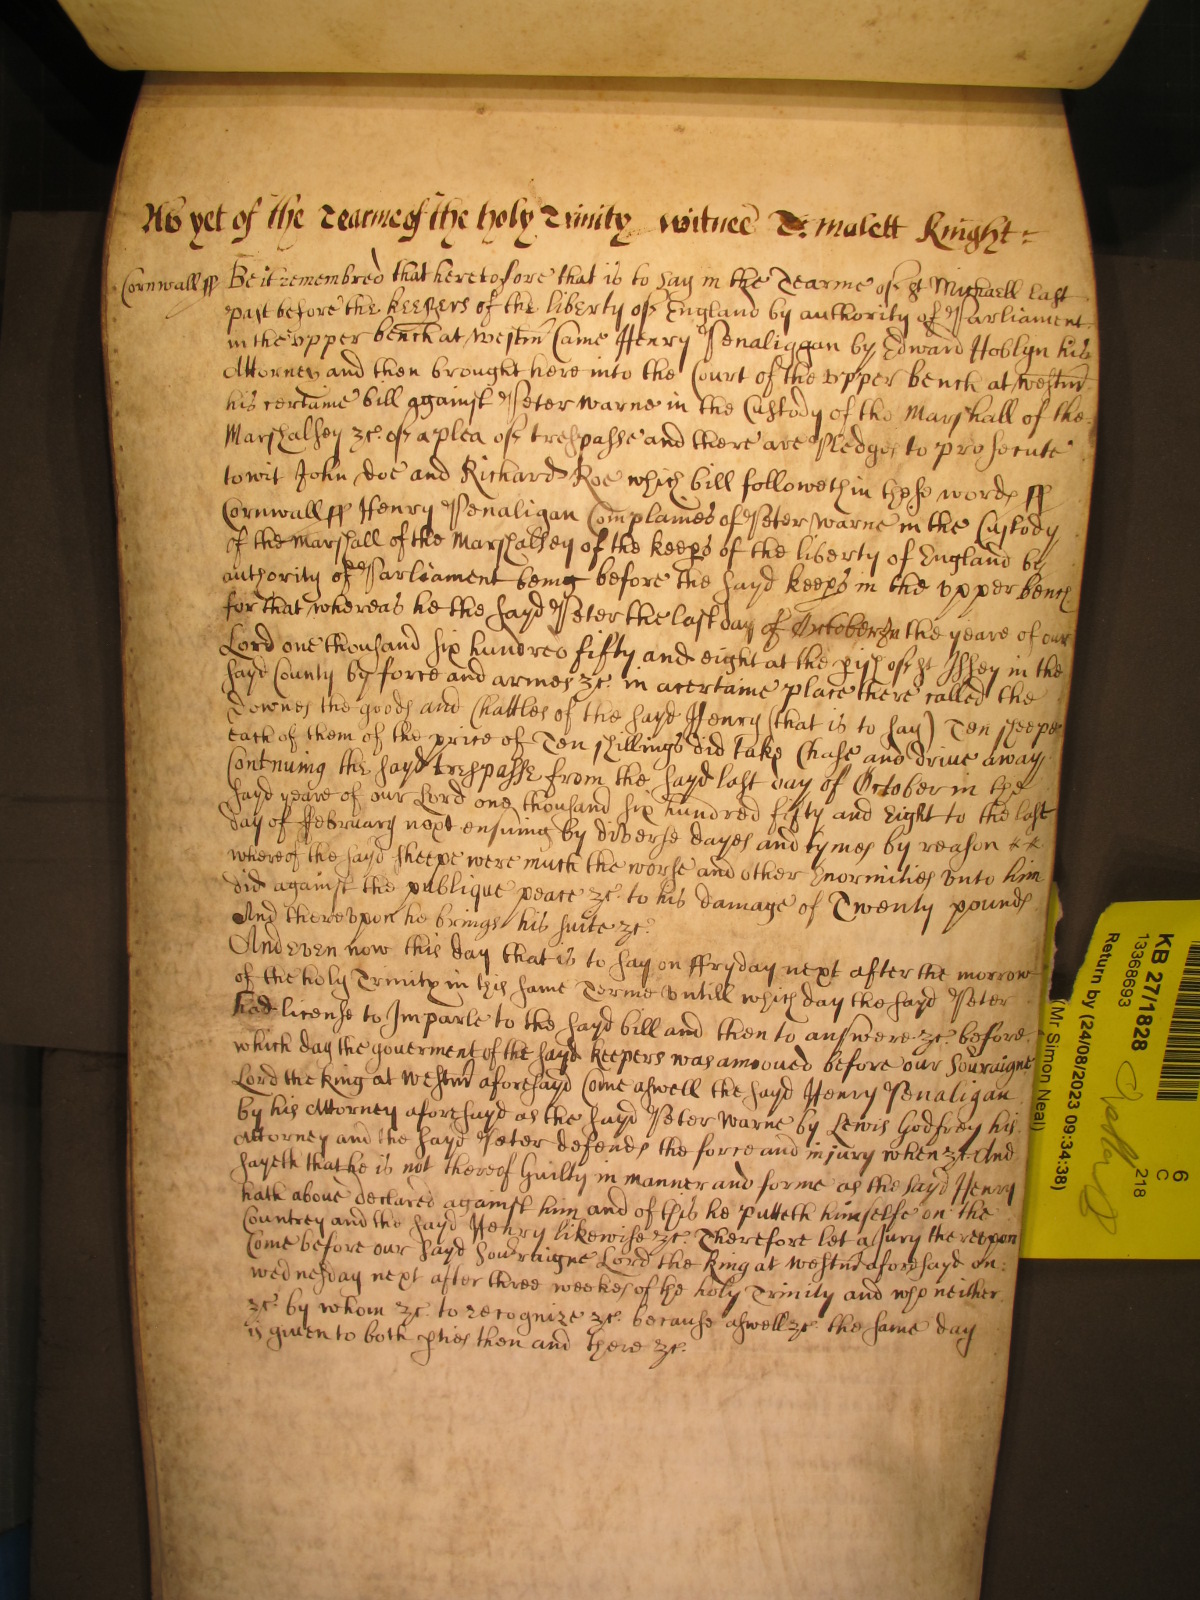 As yet of the Tearme of the holy Trinity witnes T: Malett Knight
Cornwall ss Be it remembred that heretofore that is to say in the Tearme of St Michaell last
past before the keepers of the liberty of England by authority of Parliament
in the upper bench at Westm̃ Came Henry Penaliggan by Edward Hoblyn his
Attorney and then brought here into the Court of the upper bench at Westm̃
his certaine bill against Peter Warne in the Custody of the Marshall of the
Marshalsey &c. of a plea of trespasse and there are Pledges to prosecute
towit John Doe and Richard Roe which bill followeth in these words ss
Cornwall ss Henry Penaligan Complaines of Peter Warne in the Custody
of the Marshall of the Marshalsey of the keeps of the liberty of England by
authority of Parliament being before the sayd keeps in the upper bench
for that whereas he the sayd Peter the last day of October in the yeare of our
Lord one thousand six hundred fifty and eight at the pish of St Issey in the
sayd County by force and armes &c. in a certaine place there called the
Downes the goods and Chattles of the sayd Henry (that is to say) Ten sheepe
each of them of the price of Ten shillings did take Chase and drive away
Continuing the sayd trespasse from the sayd last day of October in the
sayd yeare of our Lord one thousand six hundred fifty and Eight to the last
day of ffebruary next ensuing by diverse dayes and tymes by reason
whereof the sayd sheepe were much the worse and other Enormities unto him
did against the publique peace &c. to his damage of Twenty pounds
And thereupon he brings his suite &c.
And even now this day that is to say on ffryday next after the morrow
of the holy Trinity in this same Terme untill which day the sayd Peter
had license to Imparle to the sayd bill and then to answere &c. before
which day the goverment of the sayd keepers was amoved before our Souraigne
Lord the King at Westm̃ aforesayd Come aswell the sayd Henry Penaligan
by his Attorney aforesayd as the sayd Peter Warne by Lewis Godfrey his
Attorney and the sayd Peter defends the force and injury when &c. And
sayeth that he is not thereof Guilty in manner and forme as the sayd Henry
hath above declared against him and of this he putteth himselfe on the
Countrey and the sayd Henry likewise &c. Therefore let a Jury thereupon
Come before our sayd Souvraigne Lord the King at Westm̃ aforesayd on
wednesday next after three weekes of the holy Trinity and who neither
&c. by whom &c. to recognize &c. because aswell &c. the same day
is given to both pties then and there &c.
KB 27/1828
13368693
Return by (24/08/2023 09:34:38)
(Mr Simon Neal)
6
C
218